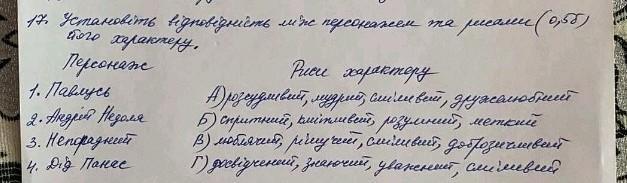 17. Установіть відповідність між персонажем та рисами (0,5б)
його характеру.
Персонаж Риси характеру
1. Павлусь А) розсудливий, мудрий, сміливий, дружелюбний
2. Андрій Недоля Б) спритний, кмітливий, розумний, меткий
3. Непорадний В) люблячий, рішучий, сміливий, доброзичливий
4. Дід Панас Г) досвідчений, знаючий, уважний, сміливий